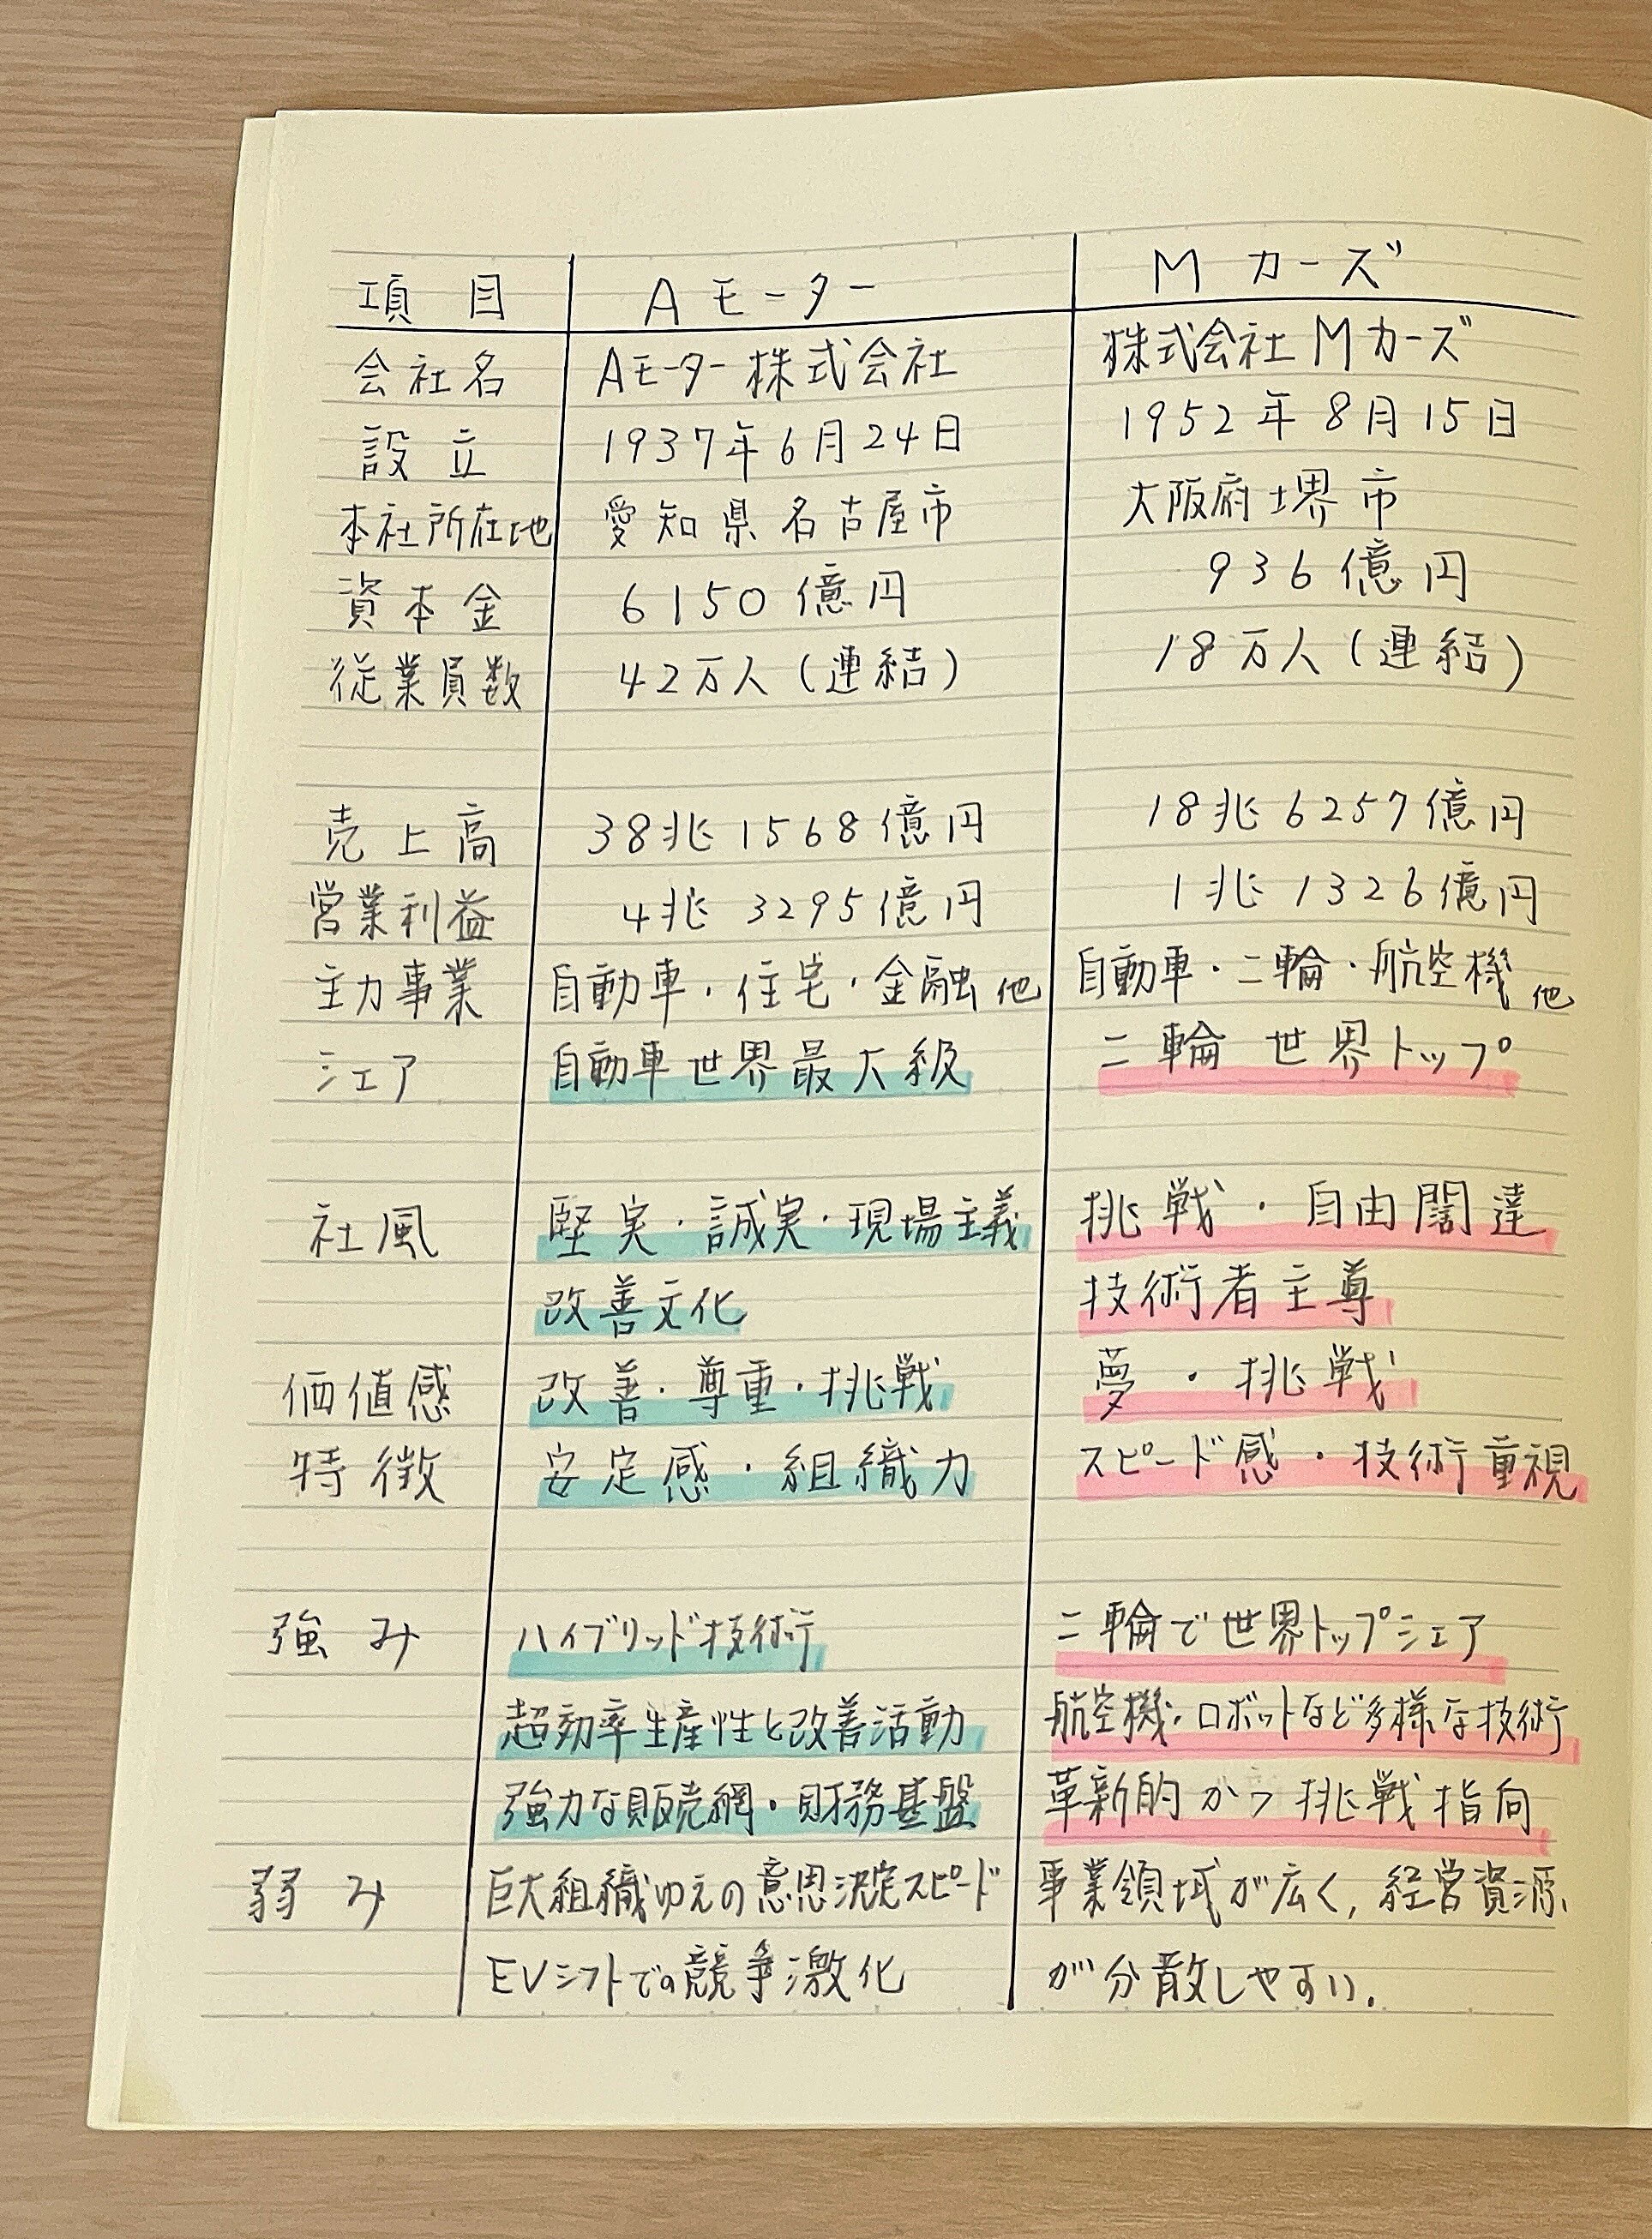 項目 Aモーター Mカーズ
会社名 Aモーター株式会社 株式会社Mカーズ
設立 1937年6月24日 1952年8月15日
本社所在地 愛知県名古屋市 大阪府堺市
資本金 6150億円 936億円
従業員数 42万人(連結) 18万人(連結)
売上高 38兆1568億円 18兆6257億円
営業利益 4兆3295億円 1兆1326億円
主力事業 自動車・住宅・金融他 自動車・二輪・航空機他
シェア 自動車世界最大級 二輪世界トップ
社風 堅実・誠実・現場主義 挑戦・自由闊達
改善文化 技術者主尊
価値感 改善・尊重・挑戦 夢・挑戦
特徴 安定感・組織力 スピード感・技術重視
強み ハイブリッド技術 二輪で世界トップシェア
超効率生産性と改善活動 航空機・ロボットなど多様な技術
強力な販売網・財務基盤 革新的かつ挑戦指向
弱み 巨大組織ゆえの意思決定スピード 事業領域が広く,経営資源
EVシフトでの競争激化 が分散しやすい.